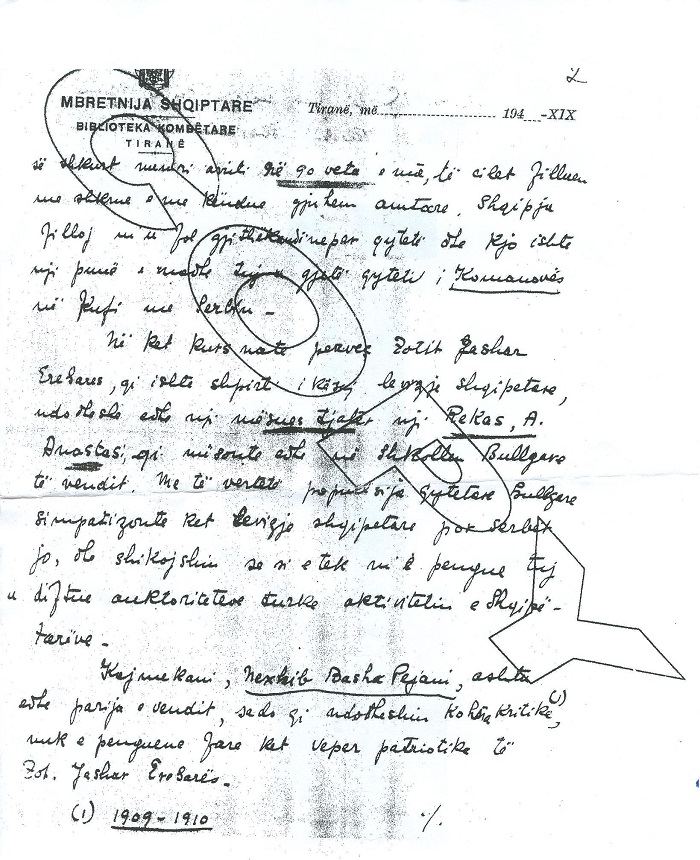 2
MBRETNIJA SHQIPTARE
Tiranë, më 194 -XIX
BIBLIOTEKA KOMBËTARE
TIRANË
së shkurt numri arriti në 90 veta e më, të cilët filluen
me shkrue e me këndue gjuhem amtare. Shqipja
filloj m'u fol gjithëkundi neper qyteti dhe kjo ishte
nji punë e madhe tuj u gjetë qyteti i Komanovës
në Kufi me Serbin -
Në ket kurs nate perveç Zotit Jashar
Erebares, qi ishte shpirt i kësaj levizje shqipetare,
ndodheshe edhe nji mësues tjeter nji Rekas, A.
Anastasi, qi mësonte edhe në Shkollen Bullgare
të vendit. Me të vertetë popullsija qytetare Bullgare
simpatizonte ket levizje shqipetare por Serbët
jo, dhe shikojshin se si e tek m'e pengue tuj
u diftue auktoriteteve turke aktivitetin e Shqipë-
tarëve -
Kajmekani, Nexhib Basha Pejani, ashtu
edhe parija e vendit, sado qi ndodheshin kohëra kritike, (1)
nuk e penguene fare ket veper patriotike të
Zot. Jashar Erebarës -
(1) 1909-1910
·/.
COPY